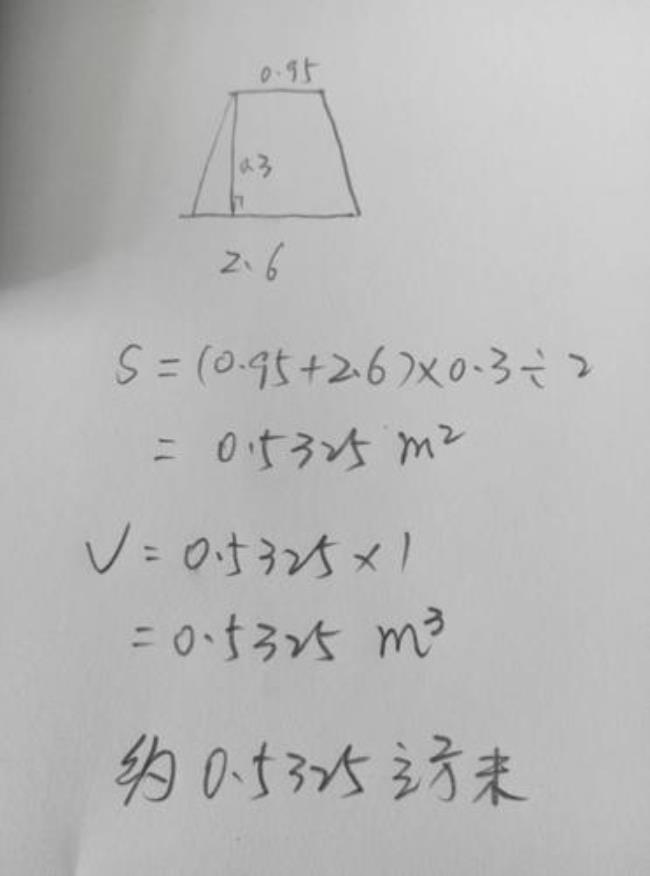 0.95
0.3
2.6
S=(0.95+2.6)×0.3÷2
= 0.5325 m²
V=0.5325×1
=0.5325 m³
约0.5325立方米